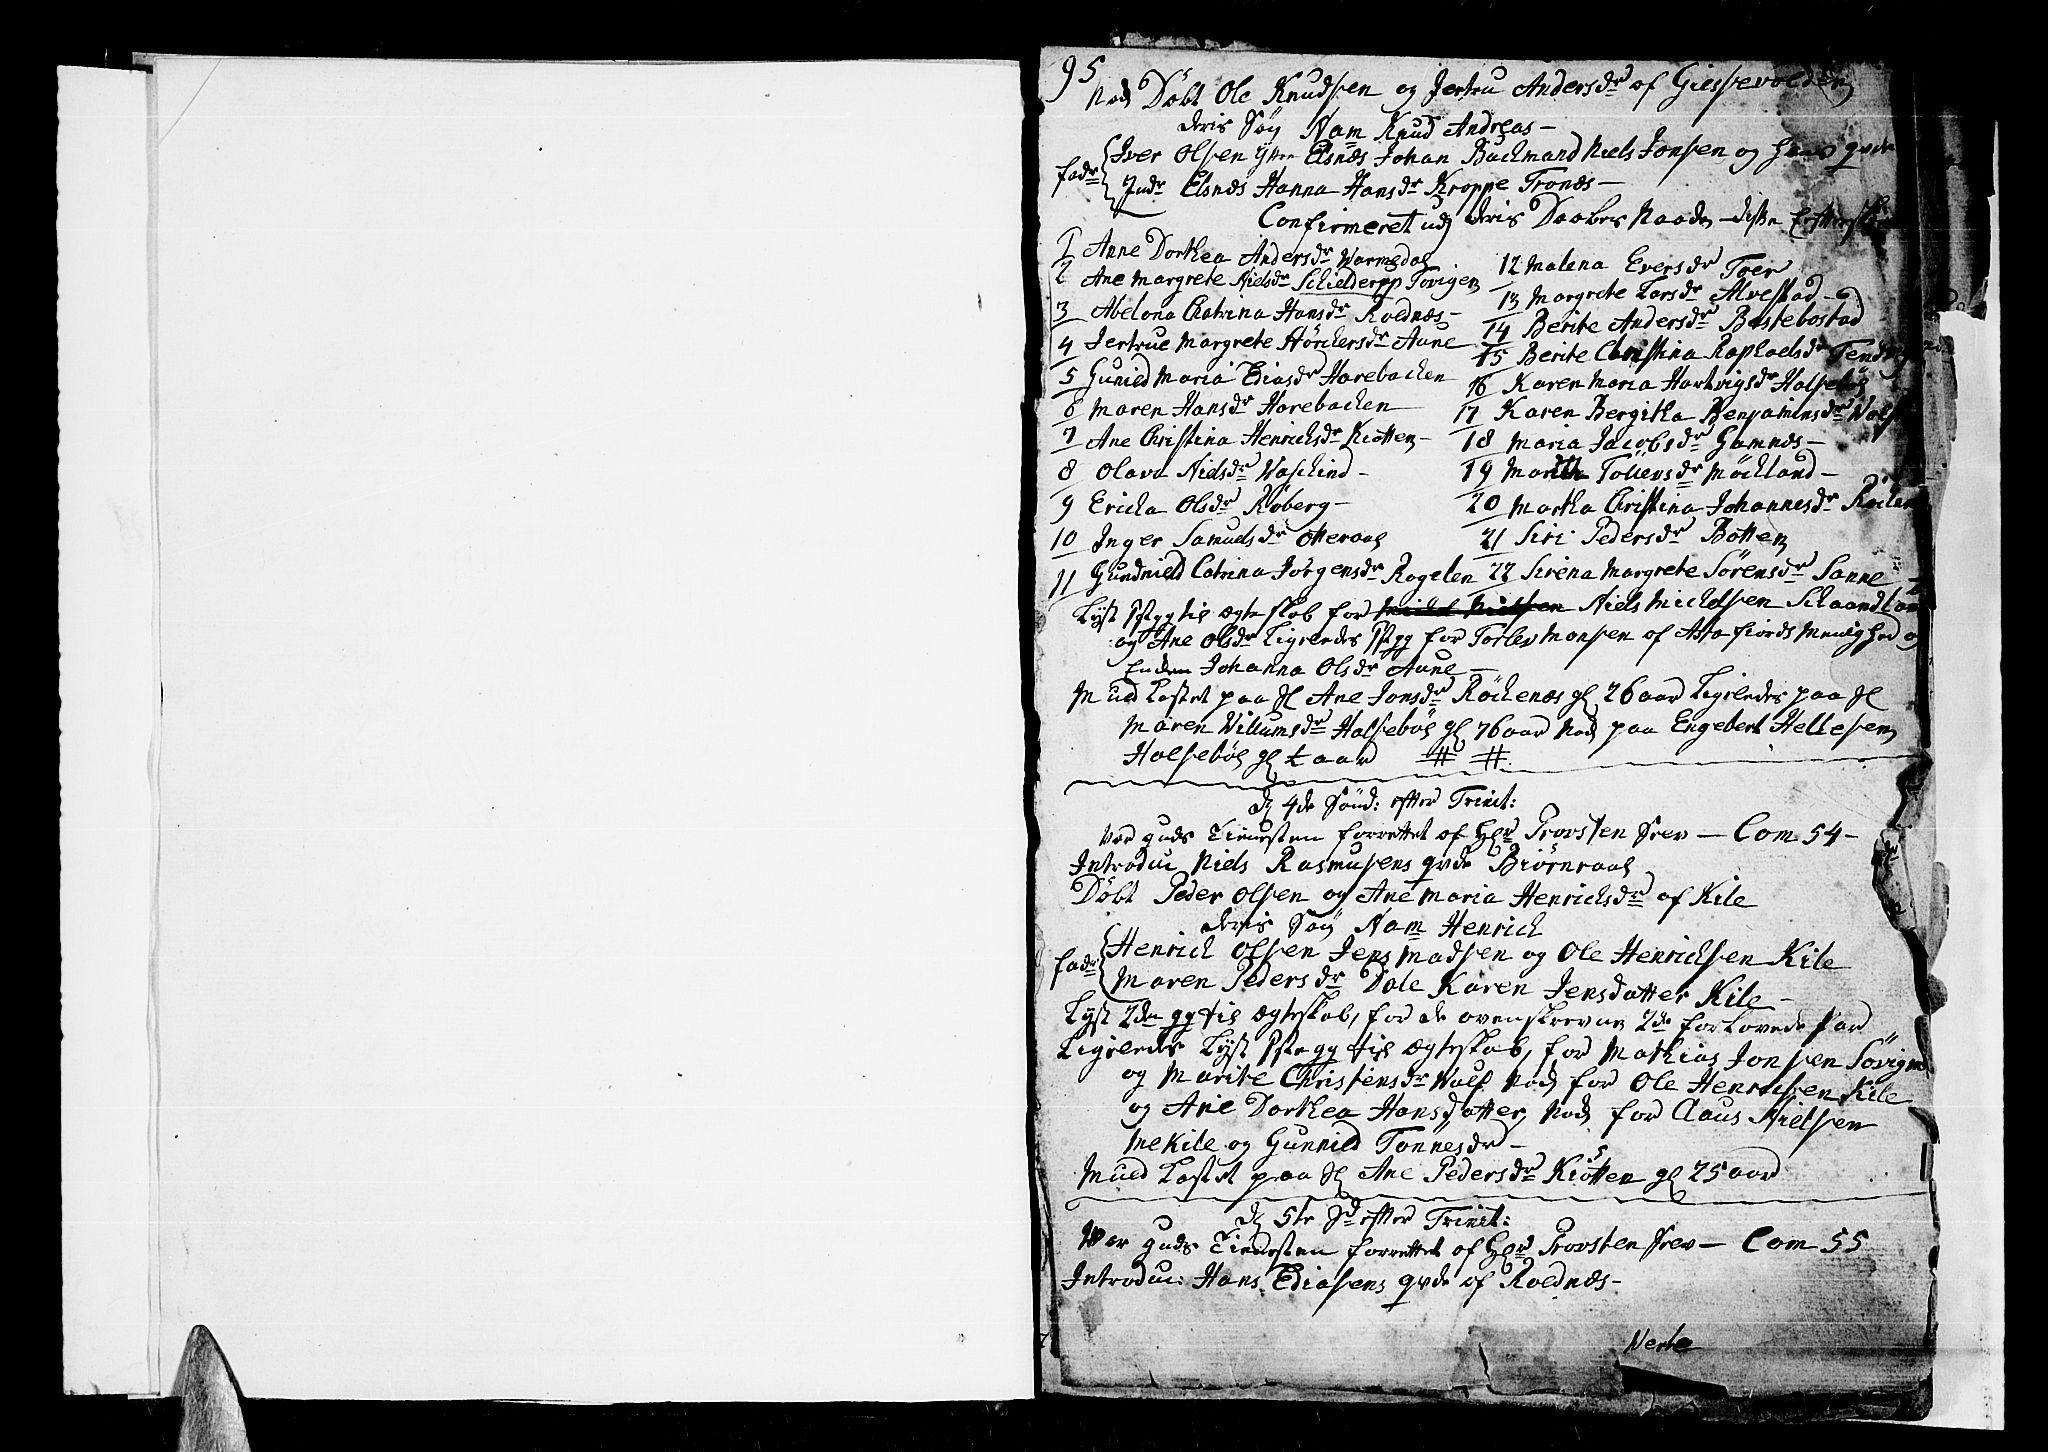 95
Nok Döbt Ole Knudsen og Jertru Andersdr af Giessevolden
deris Søn Nam Knud Andreas –
fadr Iver Olsen Ytter Elsnæs Johan Backmand Niels Jonsen og hans qvde
Indr Elsnæs Hanna Hansdr Kroppe Tronæs –
Confirmeret udj deris Daabes Naade disse
1 Anne Dorthea Andersdr Warmedal
2 Ane Margrete Nielsdr Schielderpp Tovigen
3 Abelona Chatrina Hansdr Roldnæs –
4 Jertrue Margrete Hörchersdr Aune
5 Gunild Maria Ediasdr Harebacken
6 Maren Hansdr Harebacken
7 Ane Christina Henrichsdr Kiötten –
8 Olava Nielsdr Waschind –
9 Ericha Olsdr Röberg –
10 Inger Samuelsdr Otteraae
11 Gundnield Catrina Jörgensdr Rogelen
12 Malena Eversdr Toer
13 Margrete Larsdr Alvestad –
14 Berite Andersdr Bestebostad
15 Berite Christina Raphaelsdr
16 Karen Maria Hartvigsdr Halseböe
17 Karen Bergitha Benjaminsdr
18 Maria Jacobsdr Gamnæs –
19 Marith Tollersdr Möckland –
20 Martha Christina Johannesdr
21 Siri Pedersdr Botten
22 Sirena Margrete Sörensdr Sanne –
Lyst 1ste gg til ægteskab for Niels Michelsen
og Ane Olsdr Ligeledes 1ste gg for Torlev Monsen af Astafiords Menighed og
Enden Johanna Olsdr Aune –
Muld Kastet paa Sl Ane Jonsdr Röckenæs gl 26 aar Ligeledes paa Sl
Maren Villumsdr Halseböe gl 76 aar Nok paa Engebert Hellesen
Halseböe gl t aar # #
D 4de Sönd: efter Trinit:
Var guds Tienesten forrettet af Hr Provsten Frev – Com 54 –
Introduc Niels Rasmusens qvde Biörnraae
Döbt Peder Olsen og Ane Maria Henrichsdr af Kile
deris Søn Nam Henrich
fadr Henrich Olsen Jens Madsen og Ole Henrichsen Kile
Maren Pedersdr Dale Karen Jensdatter Kile –
Lyst 2den gg til ægteskab, for de ovenskrevne 2de forlovede Par
Ligeledes Lyst 1ste gg til ægteskab, for Mathias Jonsen Sövigen
og Marite Christensdr Valf Nok for Ole Henrichsen Kile
og Ane Dorthea Hansdatter Nok for Claus Nielsen
Mekile og Gunnild Tönnesdr –
Muld Kastet paa Sl Ane Pedersdr Kiötten gl 25 aar
D 5te Sd efter Trinit:
War guds Tienesten forrettet af Hr Provsten Frev – Com 55
Introduc: Hans Ediasens qvde af Roldnæs –
Verte